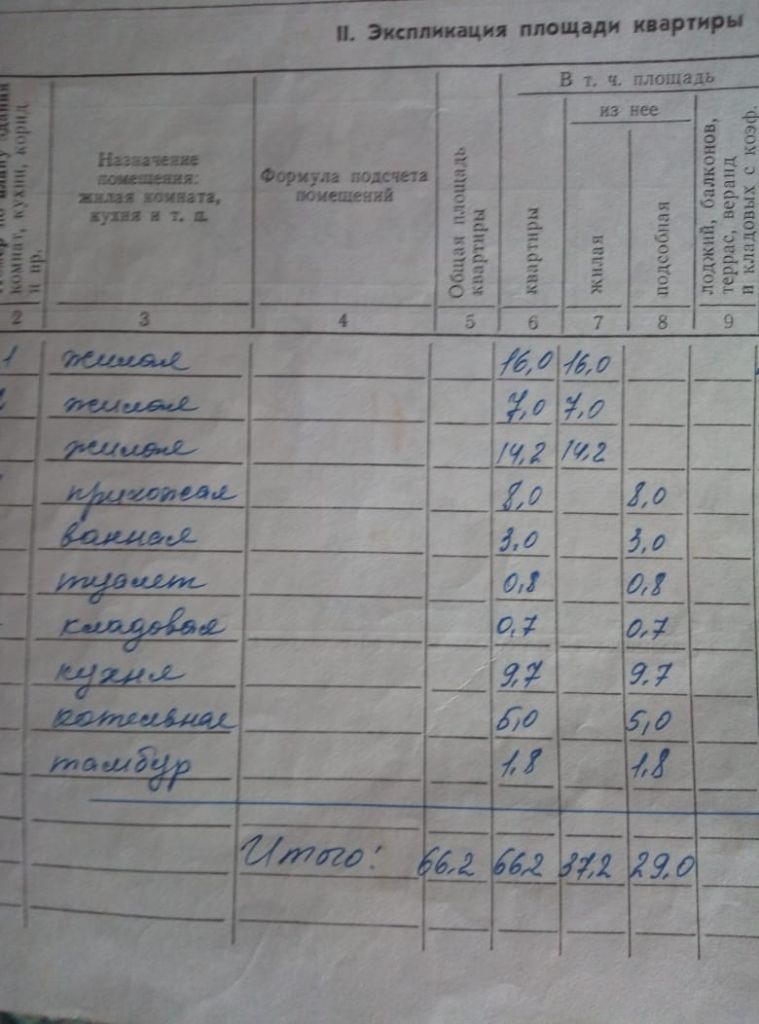 II. Экспликация площади квартиры
комнат, кухни, корид
и пр.
Назначение
помещения:
жилая комната,
кухня и т. п.
Формула подсчета
помещений
Общая площадь
квартиры
В т. ч. площадь
квартиры
из нее
жилая
подсобная
лоджий, балконов,
террас, веранд
и кладовых с коэф.
2 3 4 5 6 7 8 9
1 жилая 16,0 16,0
жилая 7,0 7,0
жилая 14,2 14,2
прихожая 8,0 8,0
ванная 3,0 3,0
туалет 0,8 0,8
кладовая 0,7 0,7
кухня 9,7 9,7
котельная 5,0 5,0
тамбур 1,8 1,8
Итого: 66,2 66,2 37,2 29,0